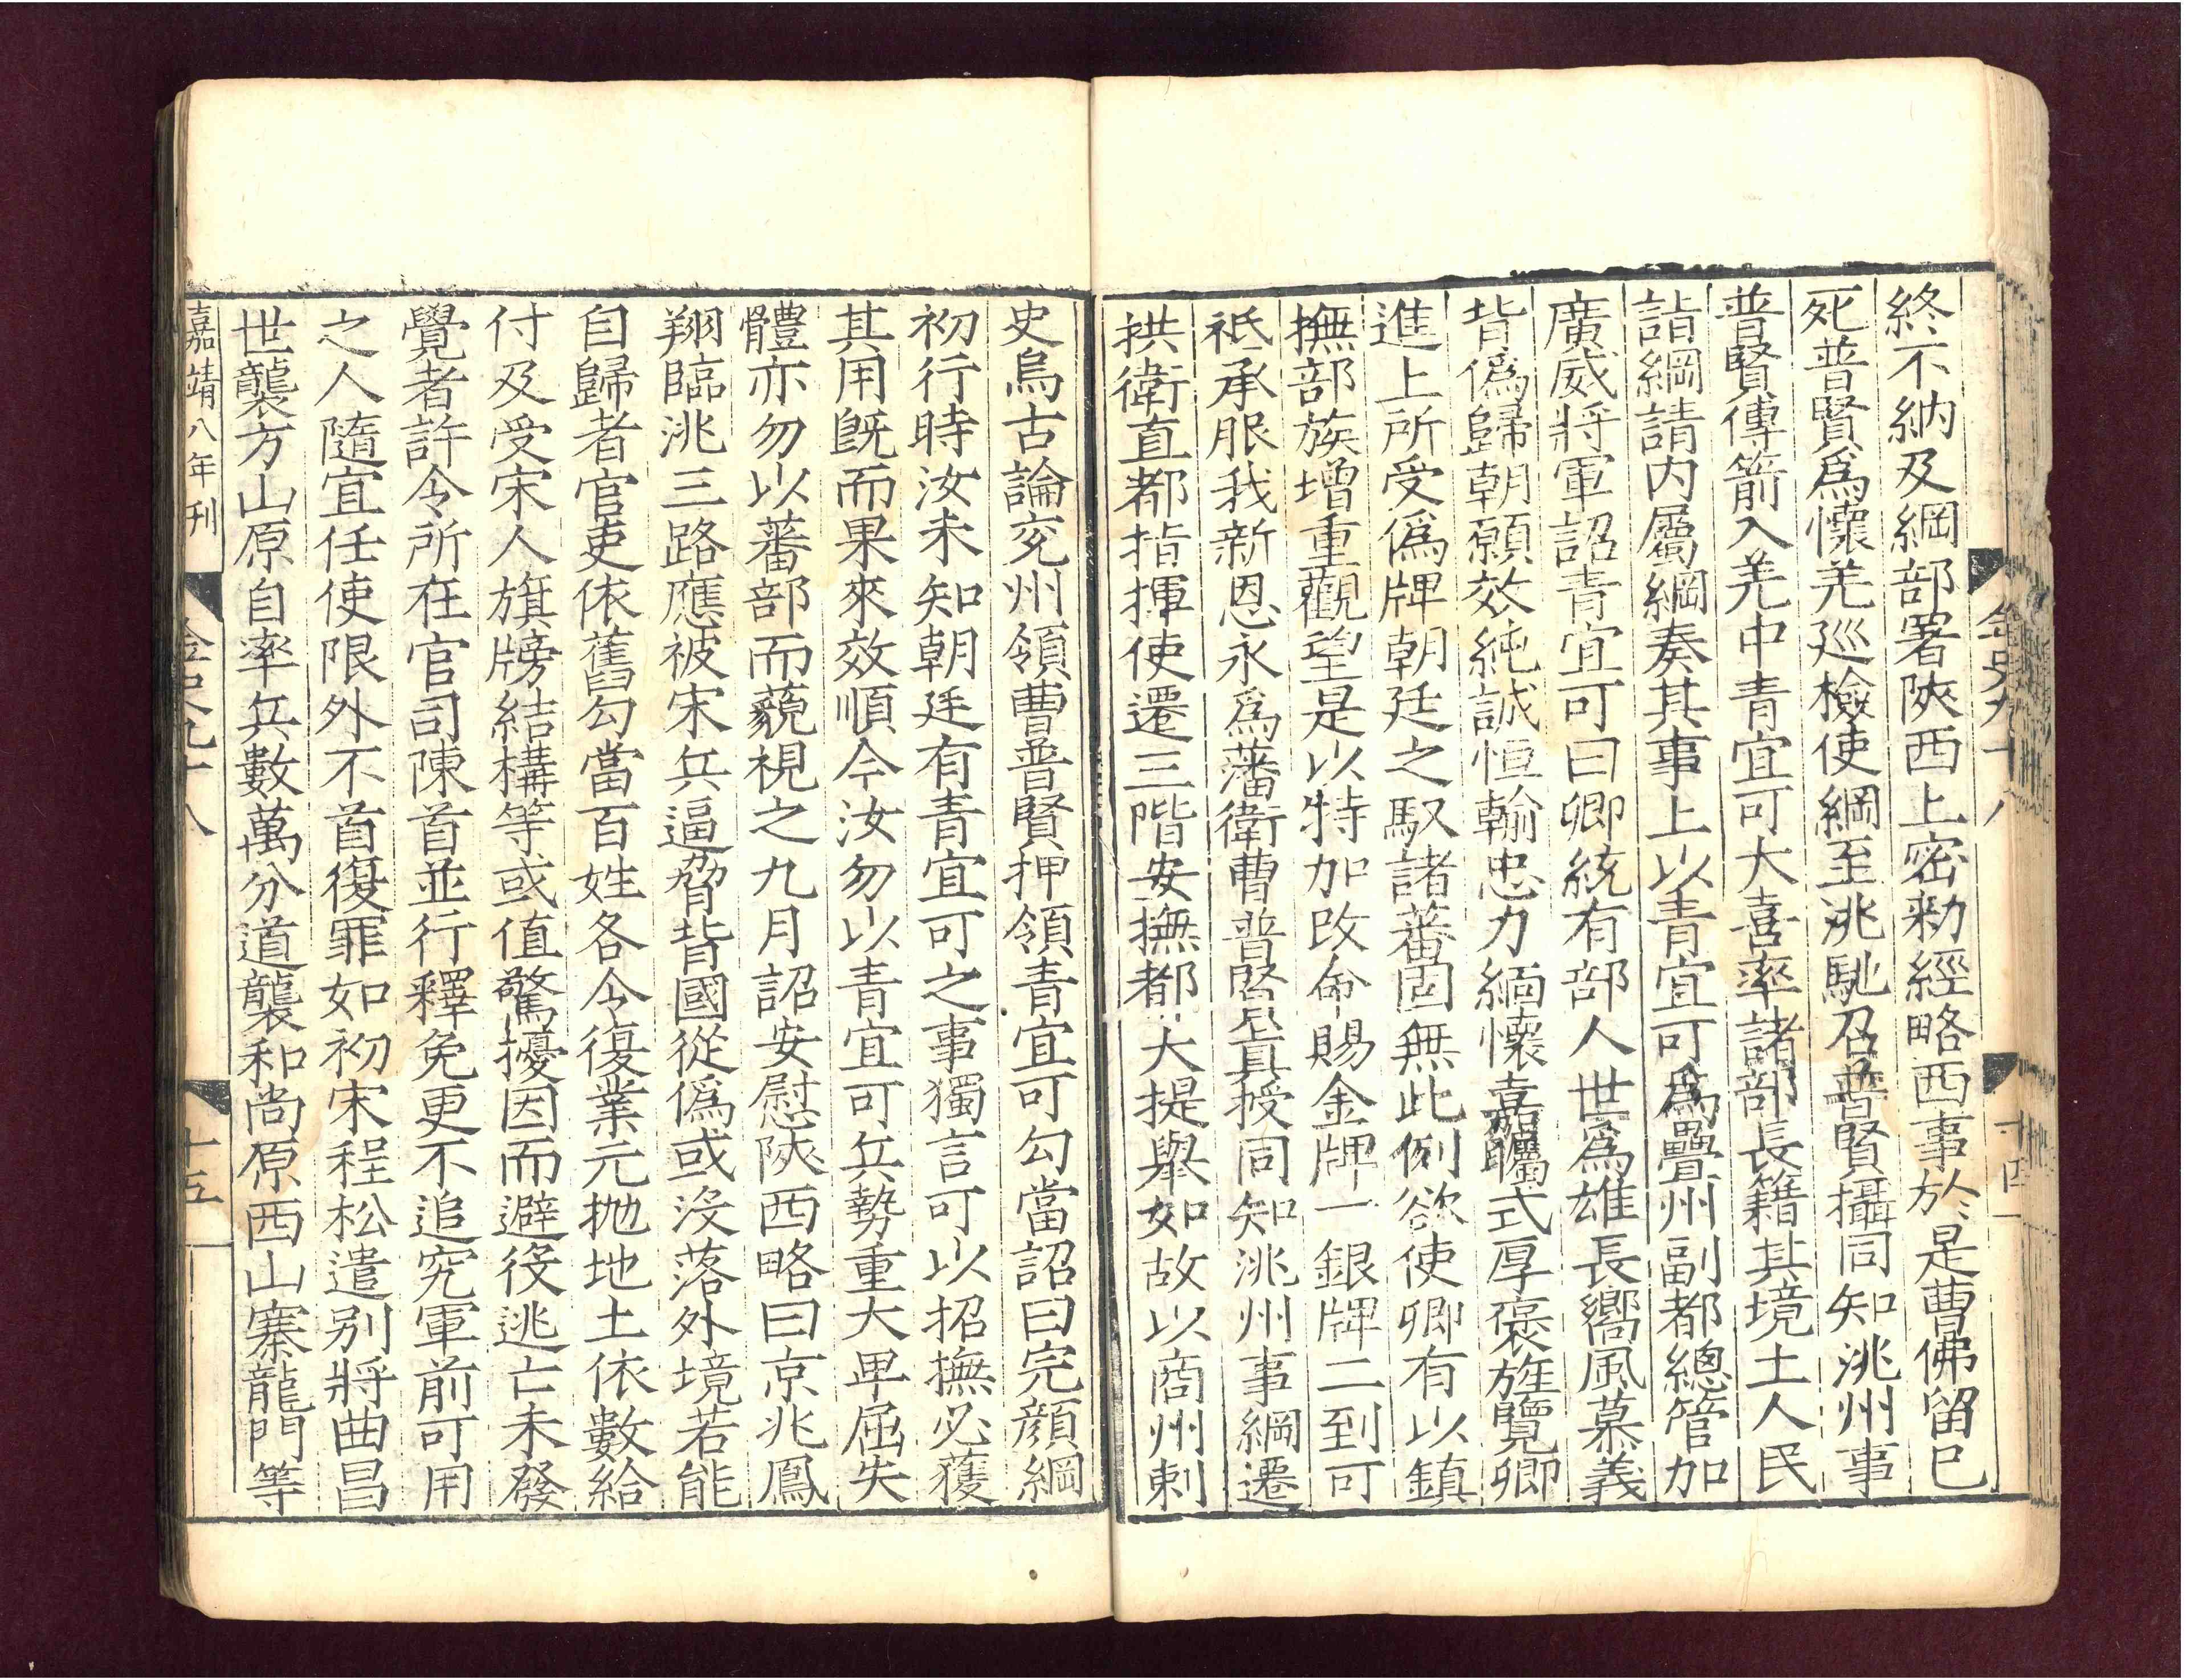 金史九十八
十四
終不納及綱部署陝西上密勑經略西事於是曹佛留已
死普賢爲懷羌廵檢使綱至洮馳召普賢攝同知洮州事
普賢傳箭入羌中青宜可大喜率諸部長籍其境土人民
詣綱請内屬綱奏其事上以青宜可爲疊州副都總管加
廣威將軍詔青宜可曰卿統有部人世爲雄長嚮風慕義
背僞歸朝願效純誠恒輸忠力緬懷嘉矚式厚褒旌覽卿
進上所受僞牌朝廷之馭諸蕃固無此例欲使卿有以鎮
撫部族增重觀望是以特加改命賜金牌一銀牌二到可
祗承服我新恩永爲藩衛曹普賢眞授同知洮州事綱遷
拱衛直都指揮使遷三階安撫都大提舉如故以商州刺
史烏古論兖州領曹普賢押領青宜可勾當詔曰完顔綱
初行時汝未知朝廷有青宜可之事獨言可以招撫必獲
其用既而果來效順今汝勿以青宜可兵勢重大卑屈失
體亦勿以蕃部而藐視之九月詔安慰陝西略曰京兆鳳
翔臨洮三路應被宋兵逼脅背國從僞或没落外境若能
自歸者官吏依舊勾當百姓各令復業元抛地土依數給
付及受宋人旗牓結構等或值驚擾因而避役逃亡未發
覺者許令所在官司陳首並行釋免更不追究軍前可用
之人隨宜任使限外不首復罪如初宋程松遣别將曲昌
世襲方山原自率兵數萬分道襲和尚原西山寨龍門等
嘉靖八年刊
金史九十八
十五